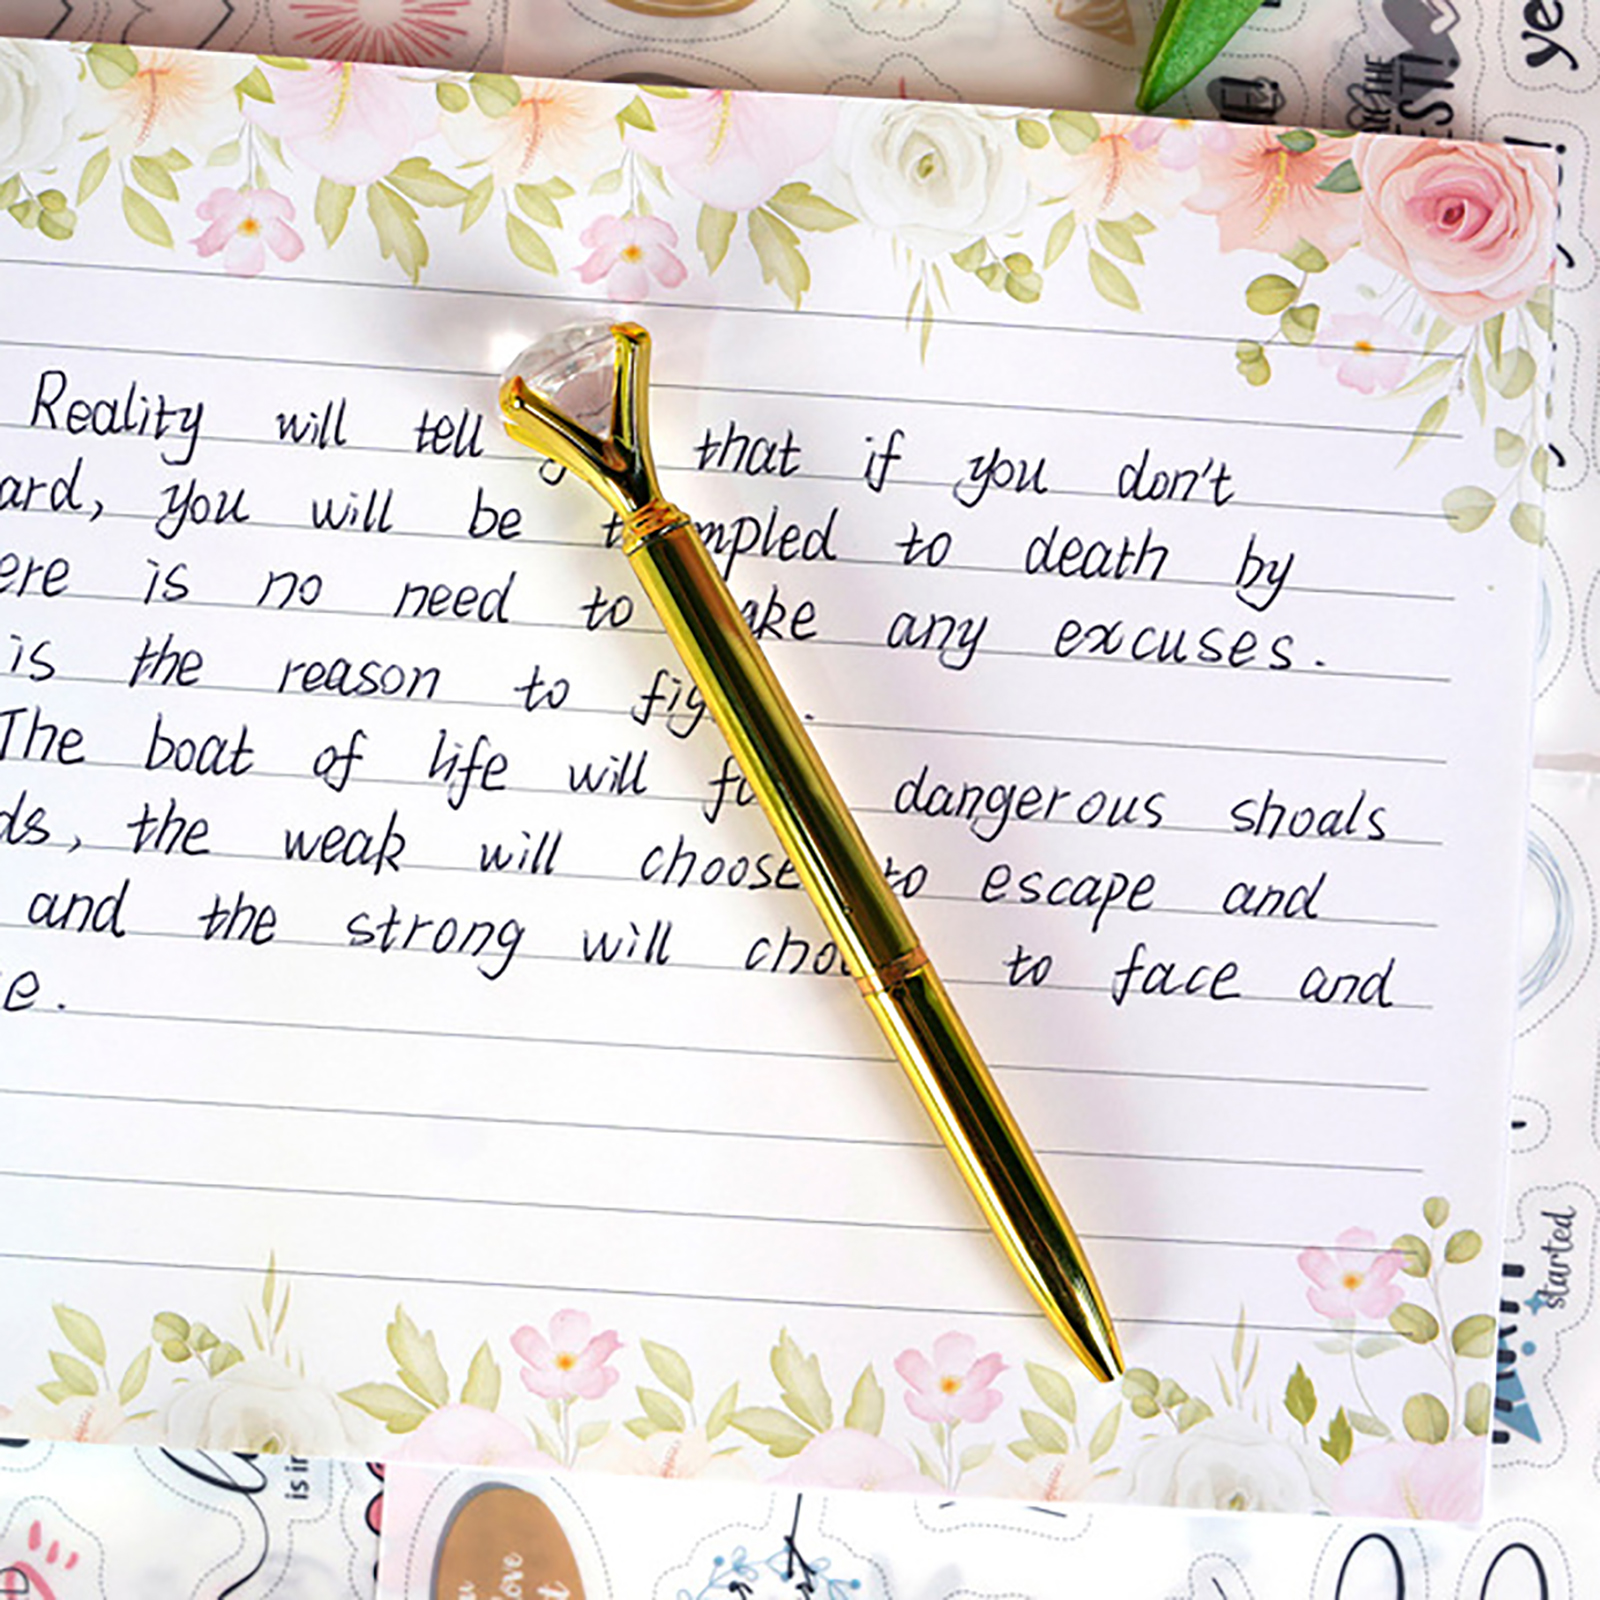 Reality will tell that if you don't
ard, you will be mpled to death by
ere is no need to ake any excuses.
is the reason to fig .
The boat of life will dangerous shoals
ds, the weak will choose to escape and
and the strong will cho to face and
e.
started